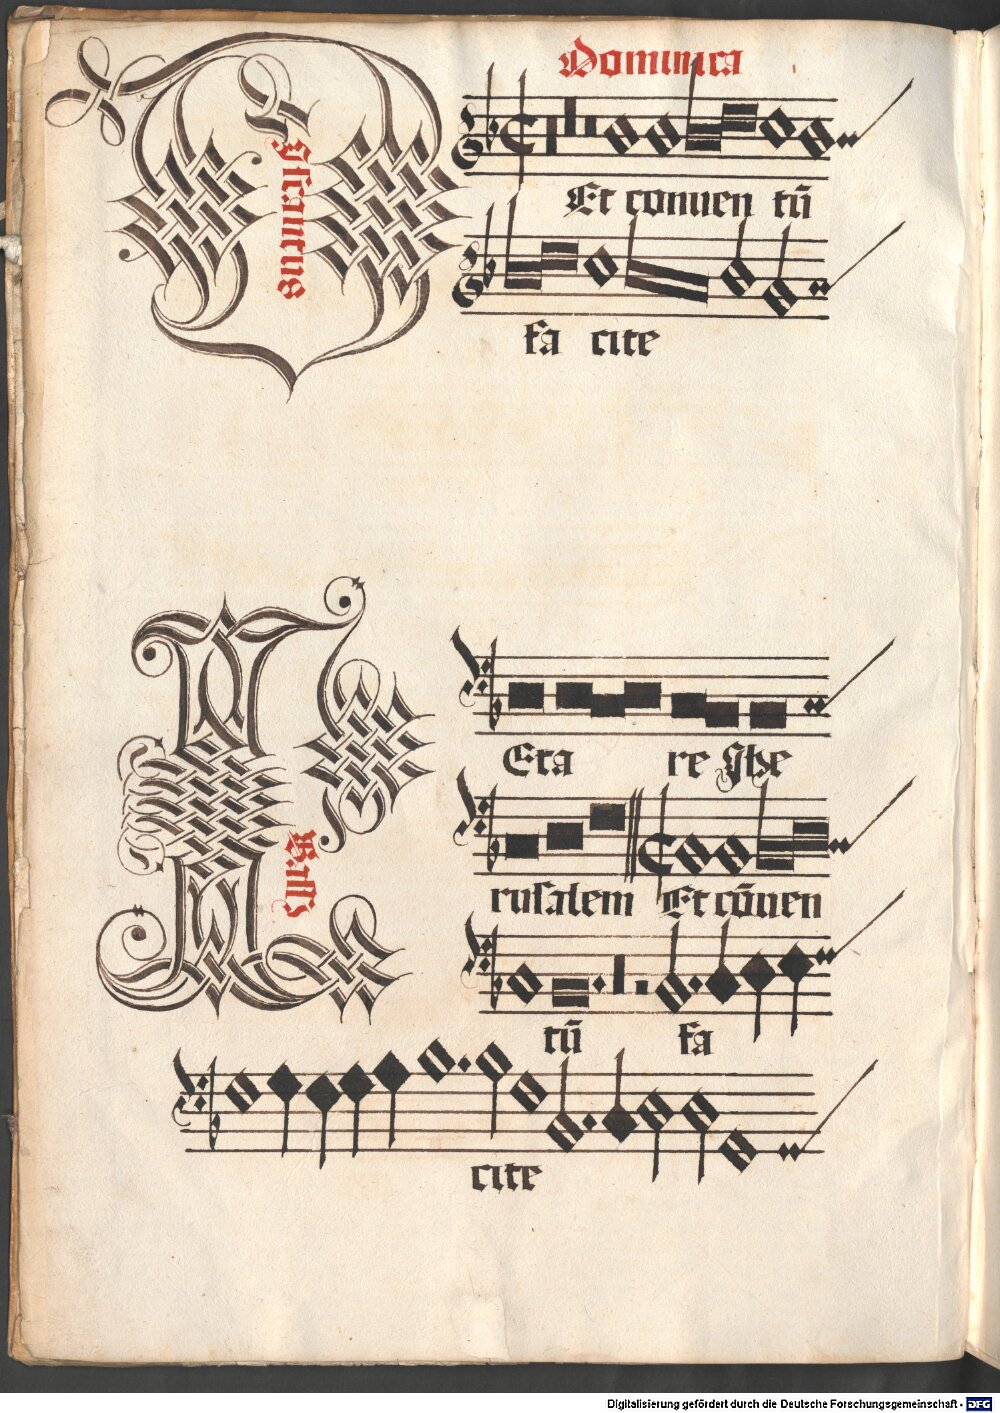 Dominica
Discantus
Et conuen tū
fa cite
Bassus
Leta re Jhe
rusalem Et cōuen
tū fa
cite
Digitalisierung gefördert durch die Deutsche Forschungsgemeinschaft - DFG